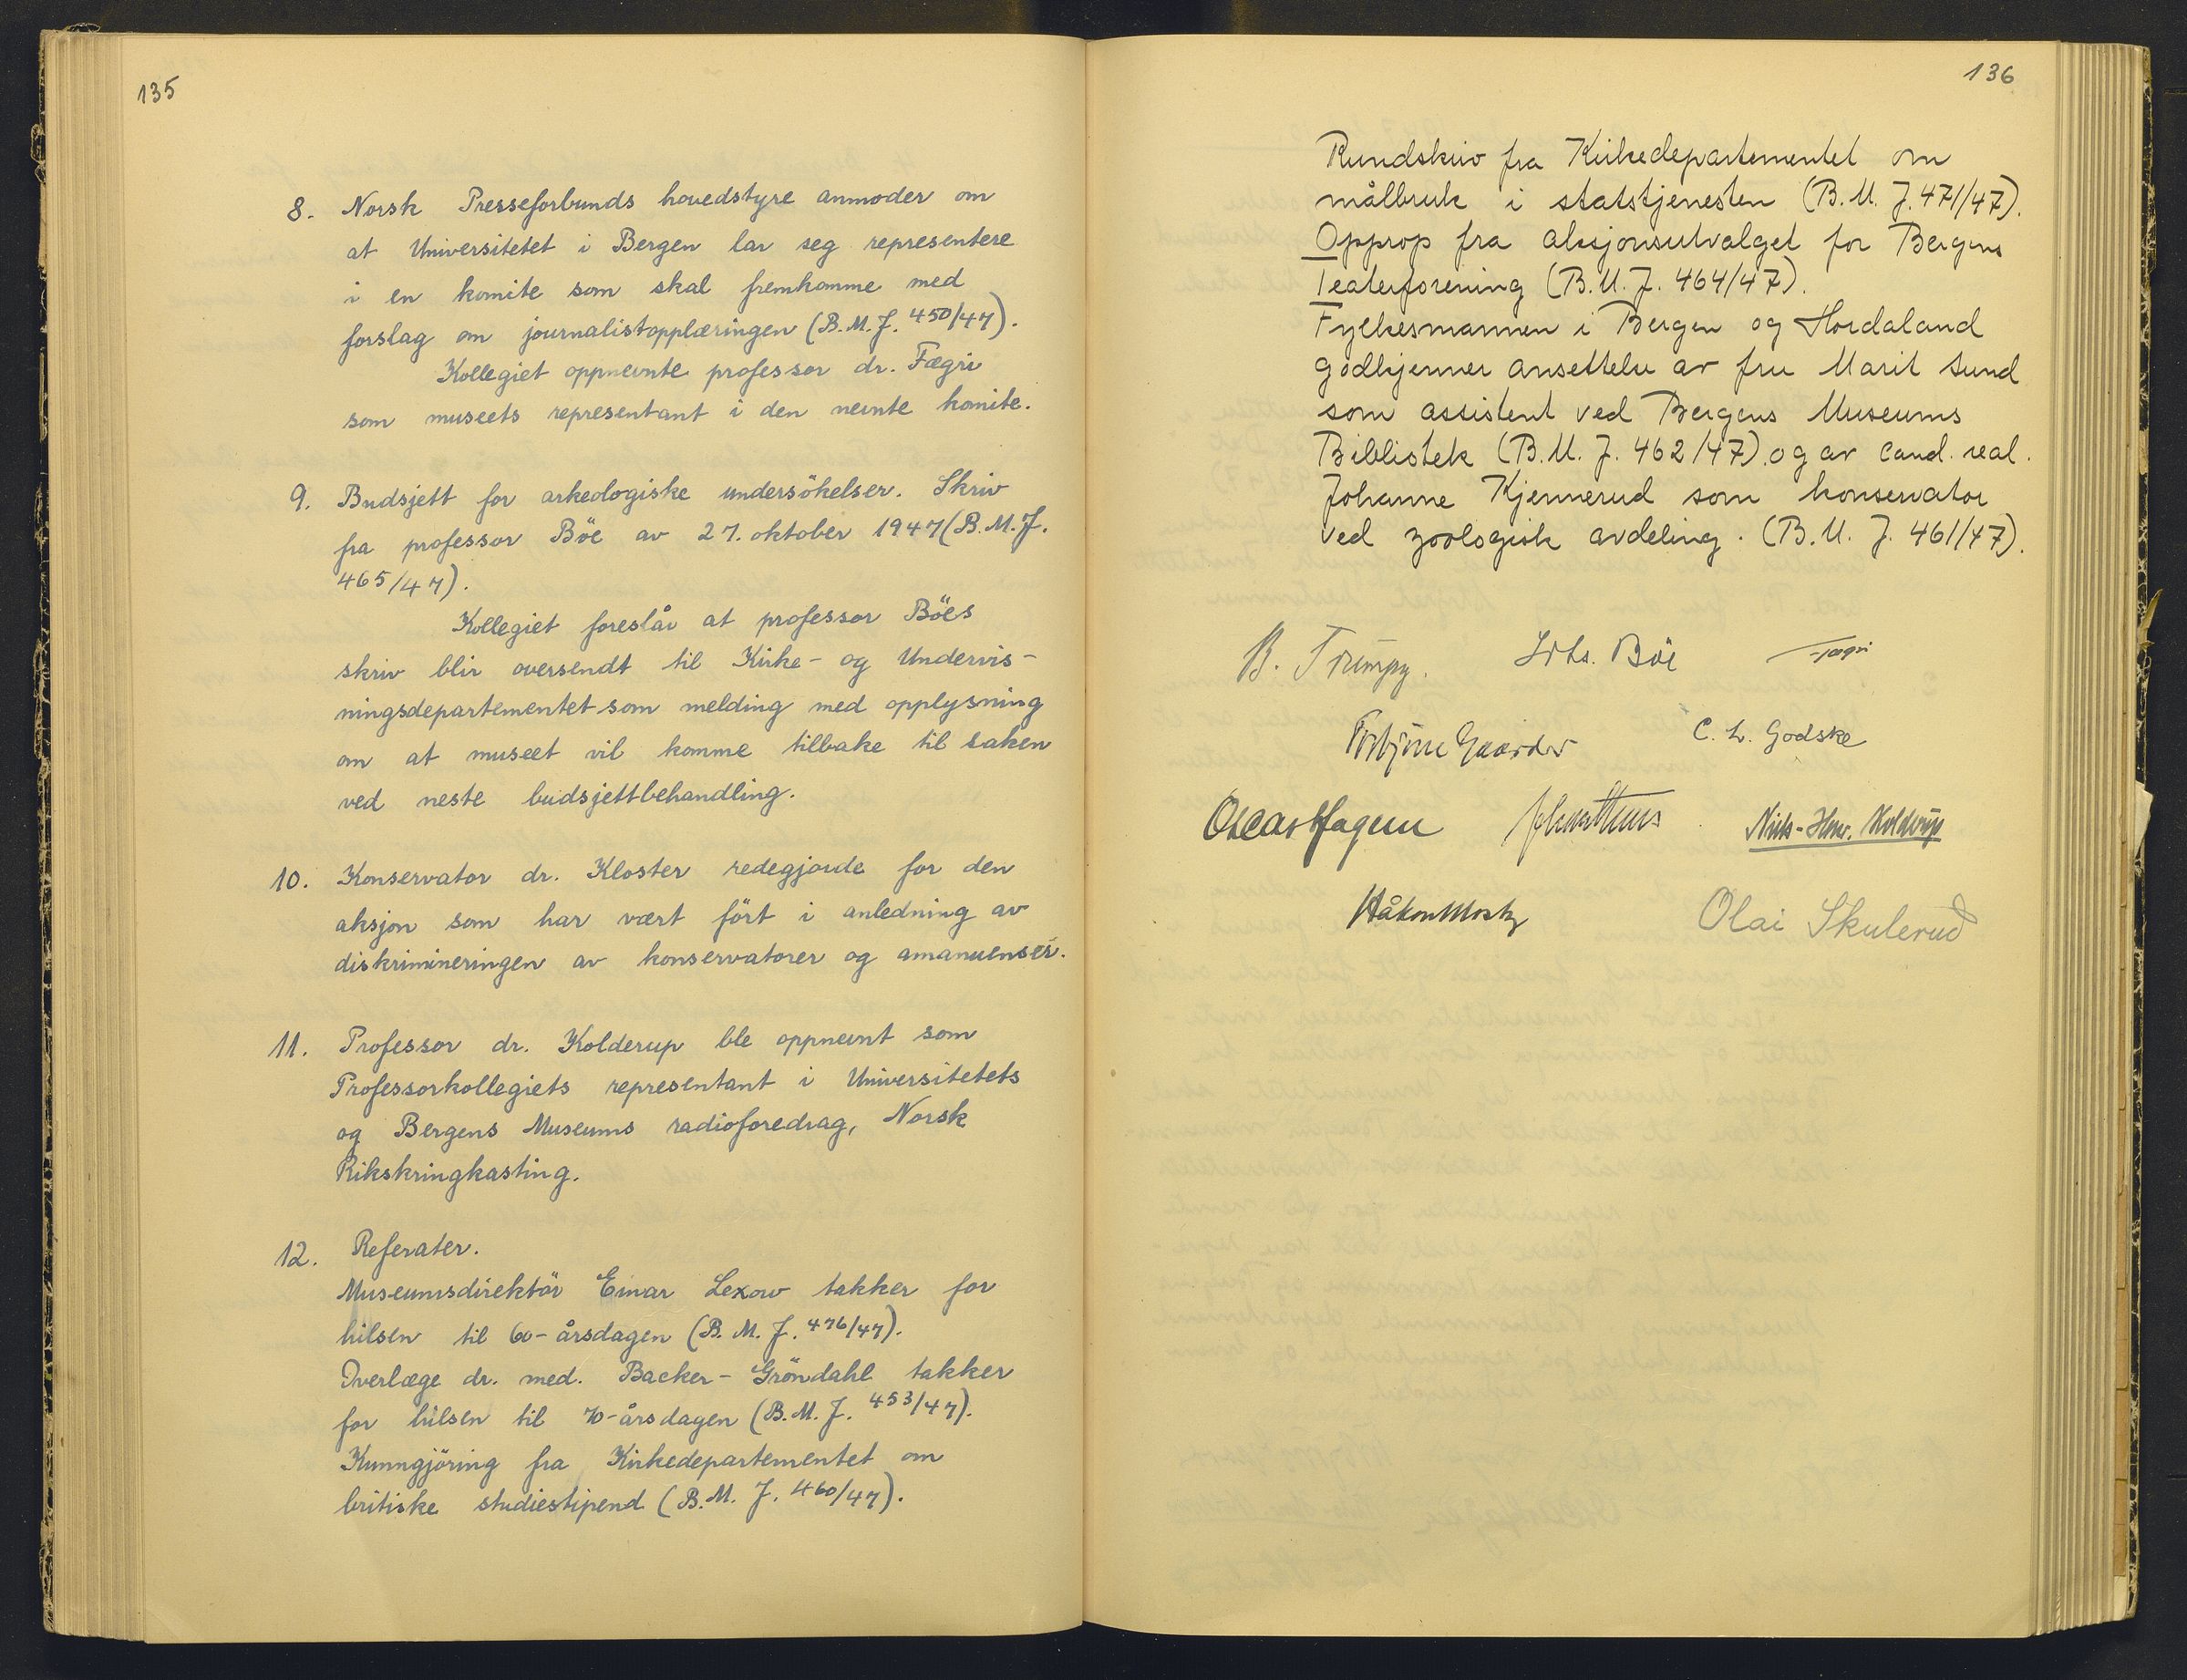 135
8. Norsk Presseforbunds hovedstyre anmoder om
at Universitetet i Bergen lar seg representere
i en komite som skal fremkomme med
forslag om journalistopplæringen (B.M.J. 450/47).
Kollegiet oppnevnte professor dr. Fægri
som museets representant i den nevnte komite.
9. Budsjett for arkeologiske undersökelser. Skriv
fra professor Böe av 27. oktober 1947 (B.M.J.
465/47).
Kollegiet foreslår at professor Böes
skriv blir oversendt til Kirke- og Undervis-
ningsdepartementet som melding med opplysning
om at museet vil komme tilbake til saken
ved neste budsjettbehandling.
10. Konservator dr. Kloster redegjorde for den
aksjon som har vært fört i anledning av
diskrimineringen av konservatorer og amanuenser.
11. Professor dr. Kolderup ble oppnevnt som
Professorkollegiets representant i Universitetets
og Bergens Museums radioforedrag, Norsk
Rikskringkasting.
12. Referater.
Museumsdirektör Einar Lexow takker for
hilsen til 60-årsdagen (B. M. J. 476/47).
Overlæge dr. med. Backer-Gröndahl takker
for hilsen til 70-årsdagen (B.M.J. 453/47).
Kunngjöring fra Kirkedepartementet om
britiske studiestipend (B.M. J. 460/47).
136
Rundskriv fra Kirkedepartementet om
målbruk i statstjenesten (B.M. J. 471/47).
Opprop fra aksjonsutvalget for Bergens
Teaterforening (B.M.J. 464/47).
Fylkesmannen i Bergen og Hordaland
godkjenner ansettelse av fru Marit Sund
som assistent ved Bergens Museums
Bibliotek (B.M. J. 462/47) og av cand. real.
Johanne Kjennerud som konservator
ved zoologisk avdeling. (B.M. J. 461/47).
B. Trumpy. Johs. Böe Fægri
Torbjörn Gaarder C. L. Godske
Oscar Hagem Niels-Henr. Kolderup
Håkon Mosby Olai Skulerud